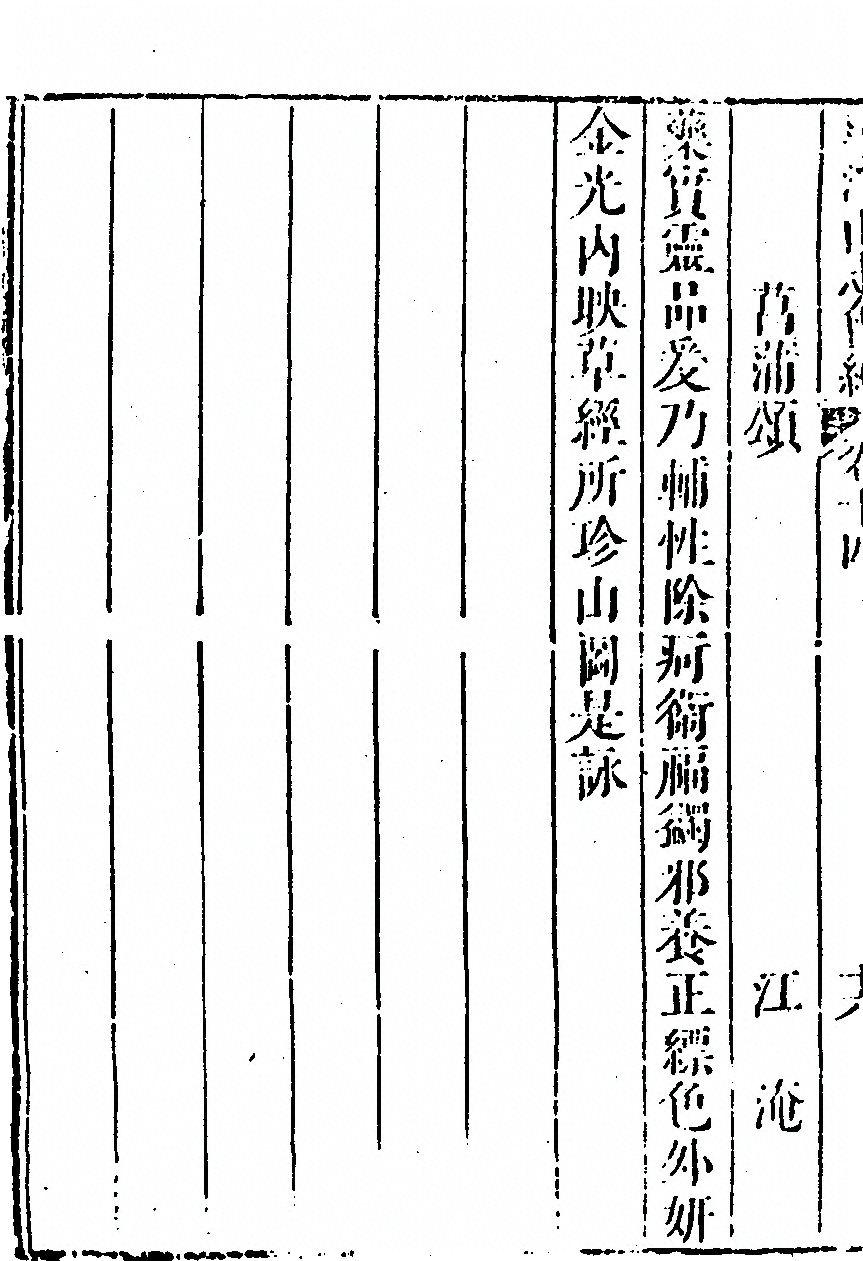 菖蒲頌 江淹
藥實靈品爰乃輔性除疴衛福蠲邪養正縹色外妍
金光內映草經所珍山圖是詠